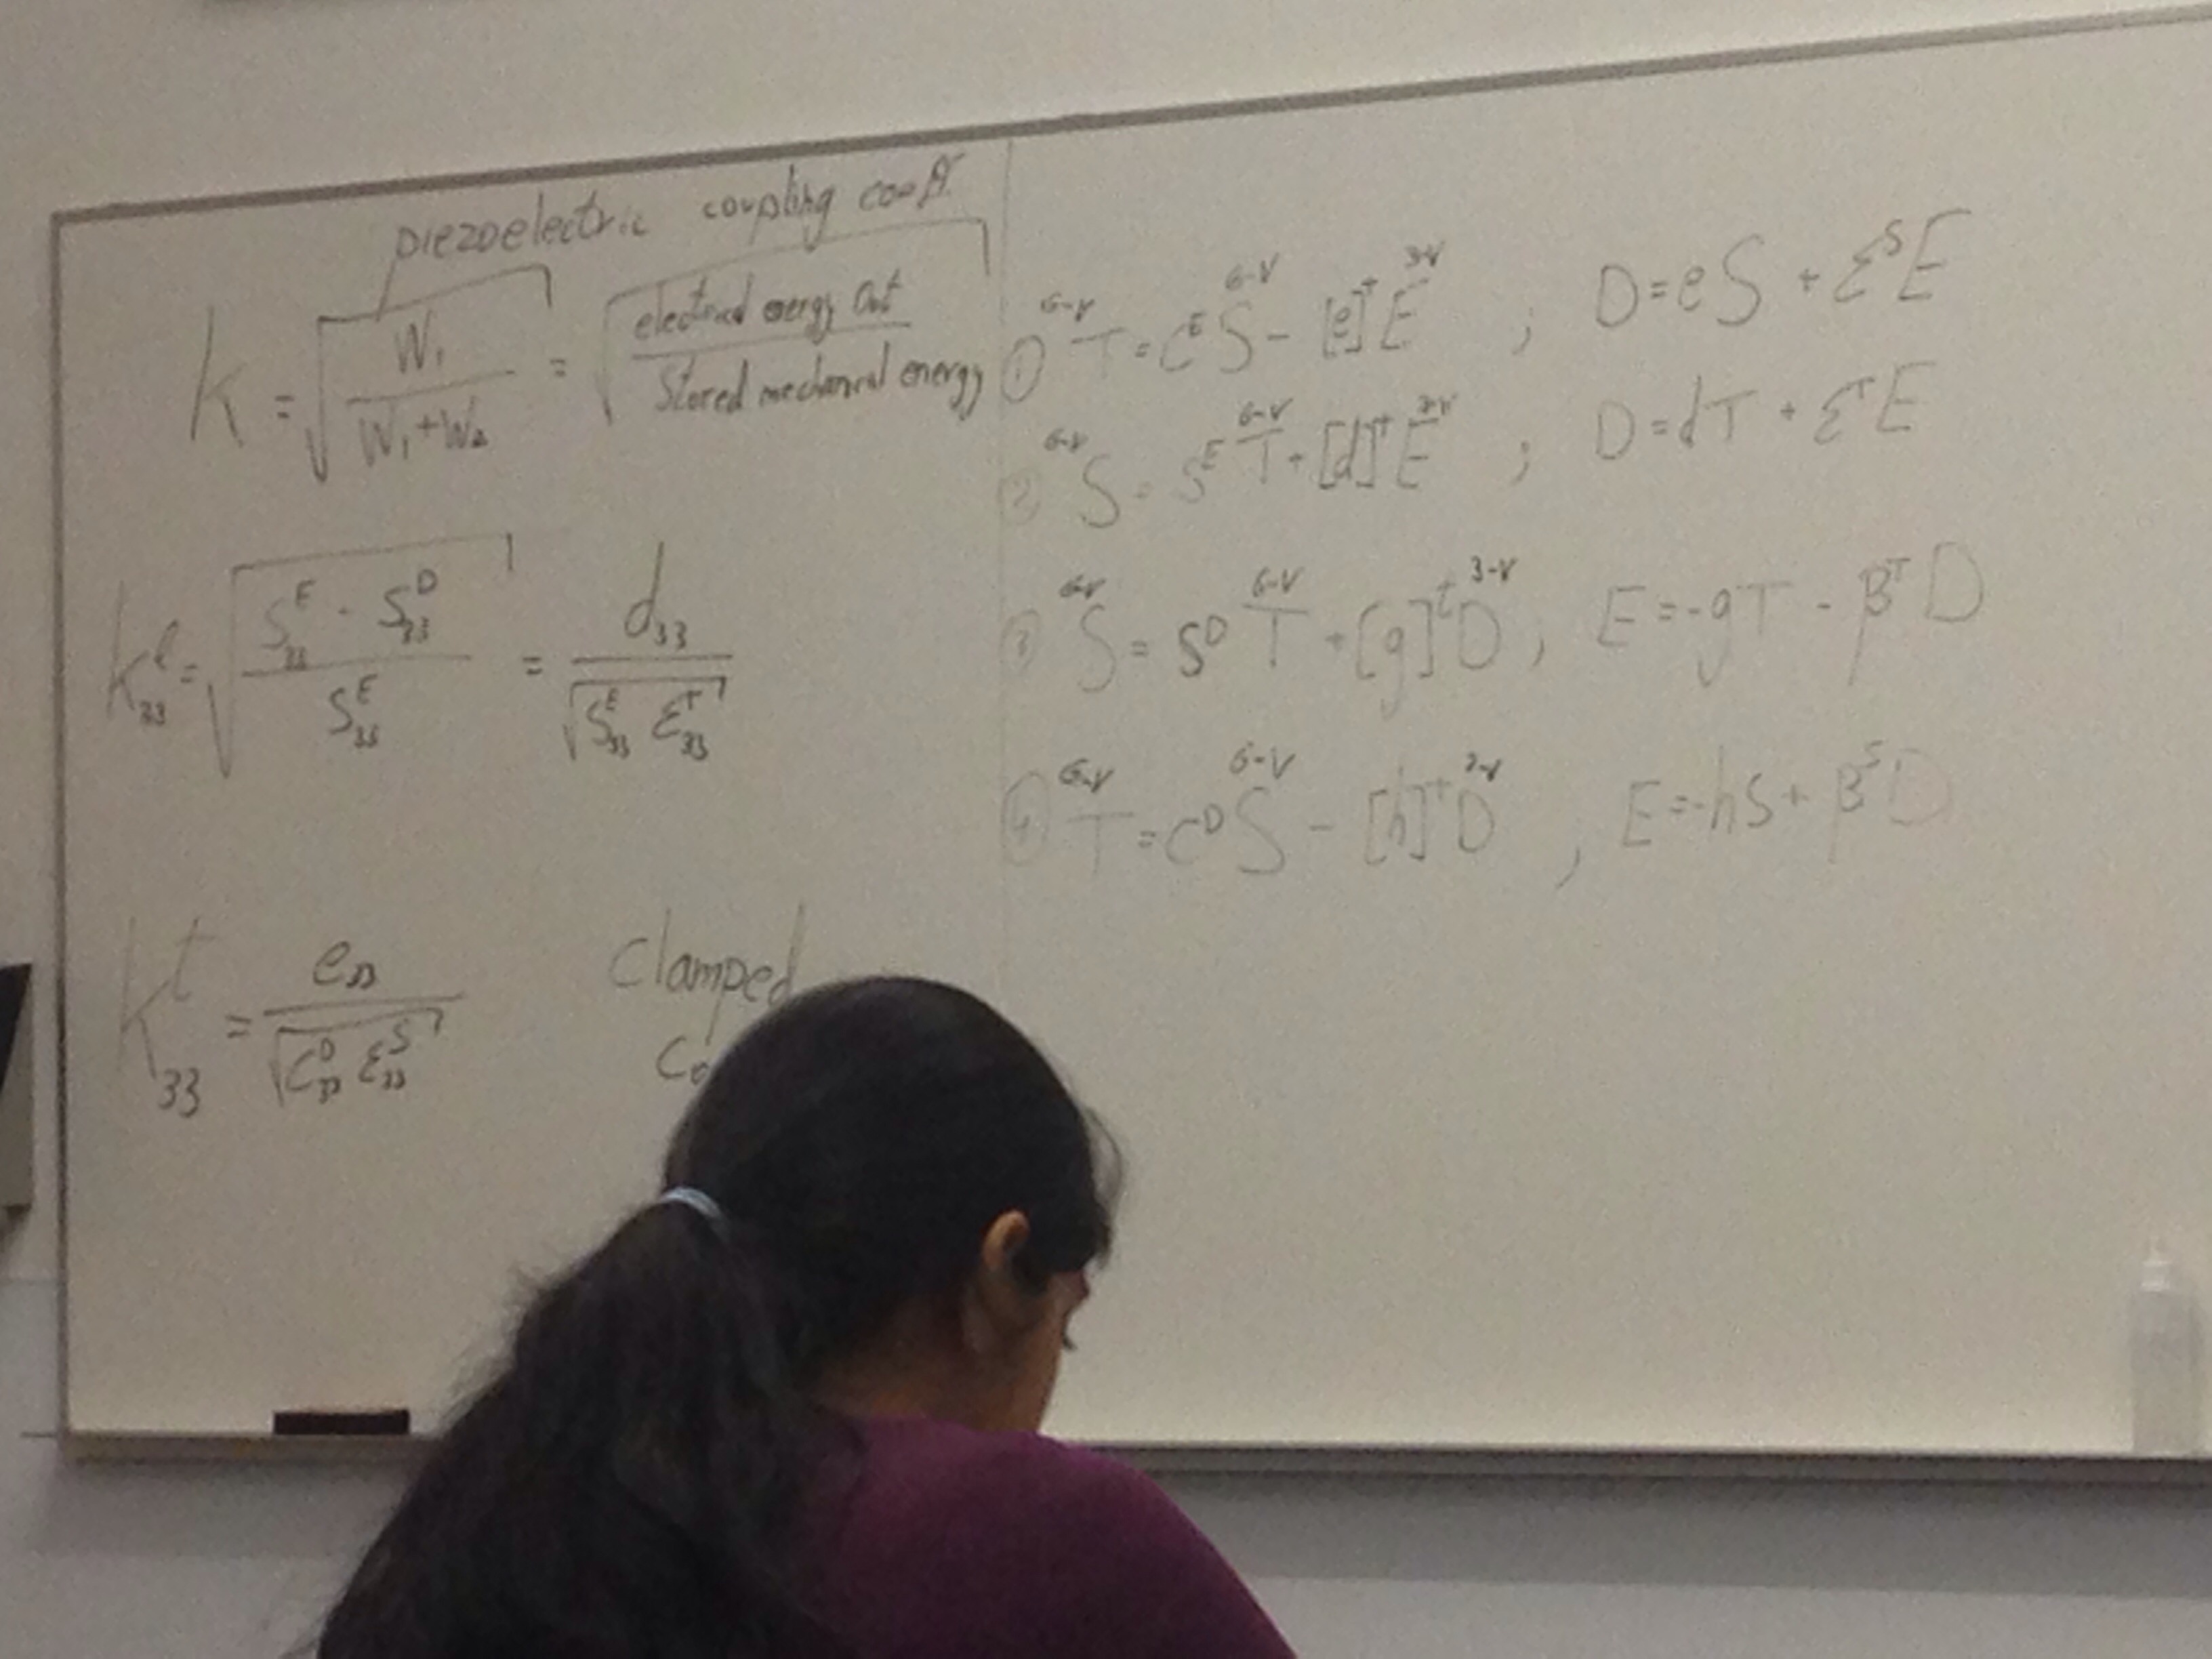 piezoelectric coupling coeff.
k = √(W₁ / (W₁+W₂)) = √(electrical energy out / Stored mechanical energy)
k₃₃ˡ = √((S₃₃ᴱ - S₃₃ᴰ) / S₃₃ᴱ) = d₃₃ / √(S₃₃ᴱ ε₃₃ᵀ)
k₃₃ᵗ = e₃₃ / √(C₃₃ᴰ ε₃₃ˢ)
clamped
6-V 6-V 3-V
① T = cᴱ S - [e]ᵗ E ; D = eS + εˢE
6-V 6-V 3-V
② S = sᴱ T + [d]ᵗ E ; D = dT + εᵀE
6-V 6-V 3-V
③ S = sᴰ T + [g]ᵗ D ; E = -gT - βᵀD
6-V 6-V 3-V
④ T = cᴰ S - [h]ᵗ D , E = -hS + βˢD